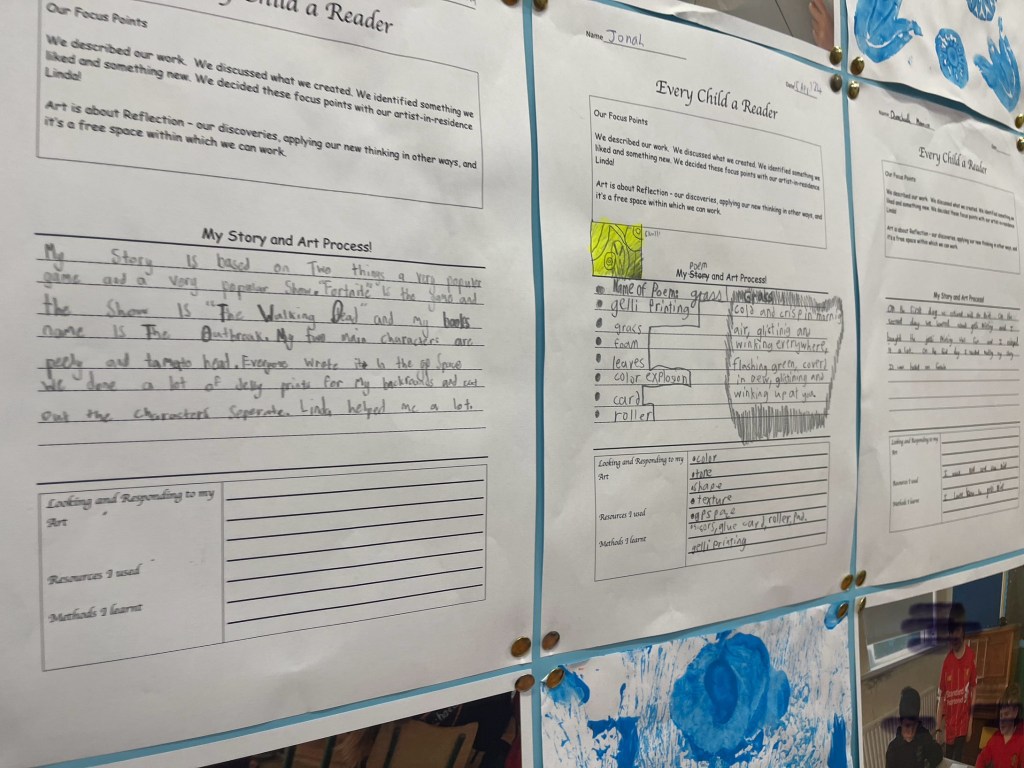 Every Child a Reader
Our Focus Points
We described our work. We discussed what we created. We identified something we
liked and something new. We decided these focus points with our artist-in-residence
Linda!
Art is about Reflection - our discoveries, applying our new thinking in other ways, and
it's a free space within which we can work.
My Story and Art Process!
My Story is based on Two things a very populer
game and a very popular Show. "Fortnite" is the game and
the Show Is "The Walking Dead" and my books
name Is The Outbreak. My two main characters are
peely and tamato head. Everyone wrote it in the op Space
We done a lot of Jelly prints for my backrounds and cut
out the characters Seperate. Linda helped me a lot.
Looking and Responding to my
Art
Resources I used
Methods I learnt
Name Jonah
Every Child a Reader
Our Focus Points
We described our work. We discussed what we created. We identified something we
liked and something new. We decided these focus points with our artist-in-residence
Linda!
Art is about Reflection - our discoveries, applying our new thinking in other ways, and
it's a free space within which we can work.
Poem
My Story and Art Process!
Name of Poem: grass
gelli printing
gracs
foam
leaves
color exploson
card
roller
cold and crisp in
air, glistinig and
winking everrywhere,
flashing green, coverd
in dew, glistining and
winking up at you
Looking and Responding to my
Art
Resources I used
Methods I learnt
color
tone
shape
texture
glue card, roller,
gelli printing
Name
Every Child a Reader
Our Focus Points
We described our work. We discussed what we created. We identified something we
liked and something new. We decided these focus points with our artist-in-residence
Linda!
Art is about Reflection - our discoveries, applying our new thinking in other ways, and
it's a free space within which we can work.
My Story and Art Process!
Looking and Responding to my
Art
Resources I used
Methods I learnt